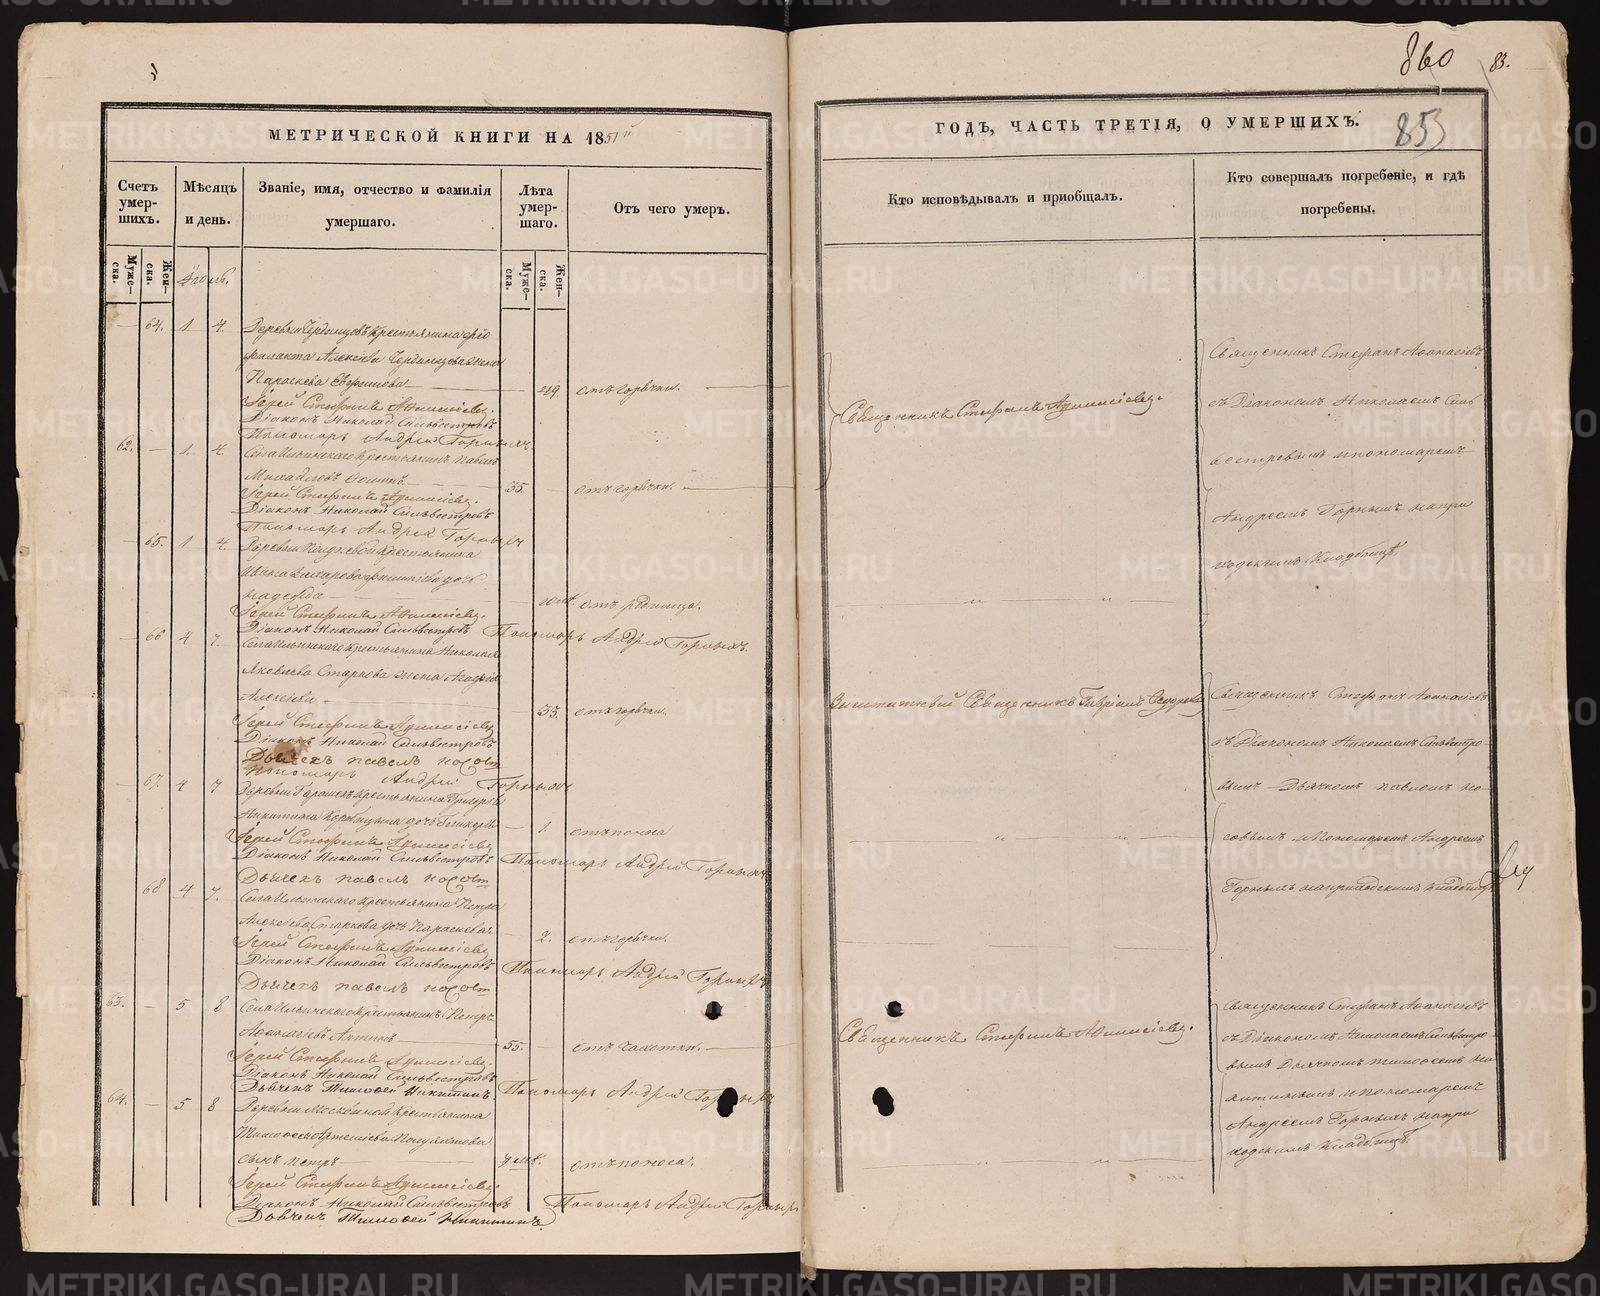 860
83.
853
МЕТРИЧЕСКОЙ КНИГИ НА 1851й
ГОДЪ, ЧАСТЬ ТРЕТІЯ, О УМЕРШИХЪ.
Счетъ умер-шихъ.
Мѣсяцъ и день.
Званіе, имя, отчество и фамилія умершаго.
Лѣта умер-шаго.
Отъ чего умеръ.
Кто исповѣдывалъ и пріобщалъ.
Кто совершалъ погребеніе, и гдѣ погребены.
Муже-ска.
Жен-ска.
Муже-ска.
Жен-ска.
64. 1 4. Деревни Крестьянина
Алексѣева жена
Параскева 49. отъ горячки.
Іерей Стефанъ Аѳанасіевъ.
Діаконъ Николай Сильвестровъ
Пономарь Андрей Горныхъ
62. 1 4. Села Ильинскаго Крестьянинъ Павелъ
Михайловъ 35. отъ горячки.
Іерей Стефанъ Аѳанасіевъ.
Діаконъ Николай Сильвестровъ
Пономарь Андрей Горныхъ
65. 1 4. Деревни Крестьянина
Ивана дочь
Надежда отъ родимца.
Іерей Стефанъ Аѳанасіевъ.
Діаконъ Николай Сильвестровъ Пономарь Андрей Горныхъ.
66 4 7. Села Ильинскаго Крестьянина Николая
Яковлева Старкова жена
Алексѣева 33. отъ горячки.
Іерей Стефанъ Аѳанасіевъ
Діаконъ Николай Сильвестровъ
Дьячекъ павелъ носовъ
пономарь Андрей Горныхъ
67. 4 7 Деревни Крестьянина Григорія
Никитина дочь 1. отъ поноса
Іерей Стефанъ Аѳанасіевъ
Діаконъ Николай Сильвестровъ Пономарь Андрей Горныхъ
Дьячекъ павелъ носовъ
68 4 7. Села Ильинскаго Крестьянина Петра
Алексѣева Старкова дочь Параскева 2. отъ горячки.
Іерей Стефанъ Аѳанасіевъ
Діаконъ Николай Сильвестровъ Пономарь Андрей Горныхъ
Дьячекъ павелъ носовъ
63. 5 8 Села Ильинскаго Крестьянинъ Петръ
Аѳанасіевъ 55. отъ чахотки.
Іерей Стефанъ Аѳанасіевъ.
Діаконъ Николай Сильвестровъ
Дьячекъ Тимоѳей Никитинъ Пономарь Андрей Горныхъ
64. 5 8 Деревни Крестьянина
Тимоѳея Артемьева
сынъ Петръ отъ поноса.
Іерей Стефанъ Аѳанасіевъ.
Діаконъ Николай Сильвестровъ Пономарь Андрей Горныхъ
Дьячекъ Тимоѳей Никитинъ.
Священникъ Стефанъ Аѳанасіевъ.
Заштатный Священникъ Гавріилъ
Священникъ Стефанъ Аѳанасіевъ.
Священникъ Стефанъ Аѳанасіевъ
съ Діакономъ Николаемъ Силь
вестровымъ и пономаремъ
Андреемъ Горныхъ на при
ходскомъ Кладбищѣ.
Священникъ Стефанъ Аѳанасіевъ
съ Діакономъ Николаемъ Сильвестро-
вымъ Дьячкомъ павломъ но-
совымъ и Пономаремъ Андреемъ
Горныхъ на приходскомъ Кладбищѣ
Священникъ Стефанъ Аѳанасіевъ
съ Діакономъ Николаемъ Сильвестро
вымъ Дьячкомъ Тимоѳеемъ Ни
китинымъ и пономаремъ
Андреемъ Горныхъ на при
ходскомъ Кладбищѣ.
METRIKI.GASO-URAL.RU